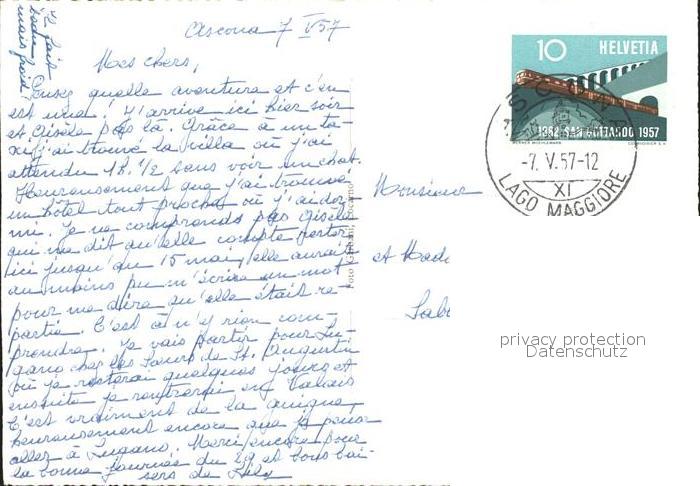 Ascona 7 V 57
Mes chers,
Pensez quelle aventure et c'en
est une! J'arrive ici hier soir
et Gisèle pas là. Grâce à un ta-
xi j'ai trouvé la villa où j'ai
attendu 1h. 1/2 sans voir un chat.
Heureusement que j'ai trouvé
un hôtel tout proche où j'ai dor-
mi. Je ne comprends pas Gisèle
qui me dit qu'elle compte rester
ici jusqu'au 15 mai, elle aurait
au moins pu m'écrire un mot
pour me dire qu'elle était re-
partie. C'est à n'y rien com-
prendre. Je vais partir pour Lu-
gano chez les Soeurs de St. Augustin
où je resterai quelques jours et
ensuite je rentrerai en Valais
C'est vraiment de la guigne,
heureusement encore que je puisse
aller à Lugano. Merci encore pour
la bonne journée du 29 et bons bai-
sers de Lily
Il fait
mais froid
Monsieur
et Mada
HELVETIA
10
1882 SAN GOTTARDO 1957
ASCONA
-7. V. 57-12
XI
LAGO MAGGIORE
privacy protection
Datenschutz